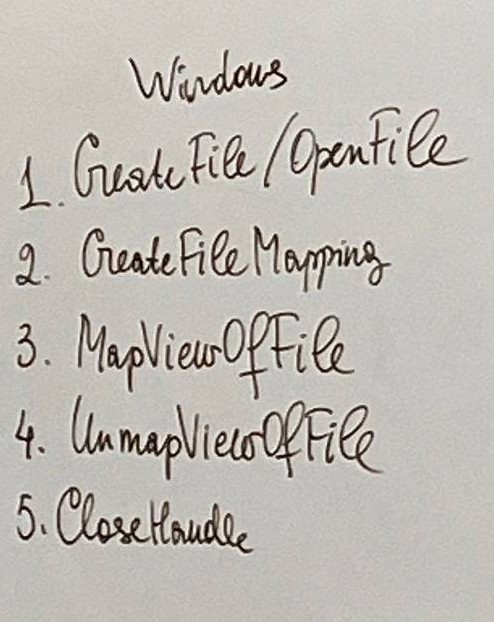 Windows
1. CreateFile/OpenFile
2. CreateFileMapping
3. MapViewOfFile
4. UnmapViewOfFile
5. CloseHandle